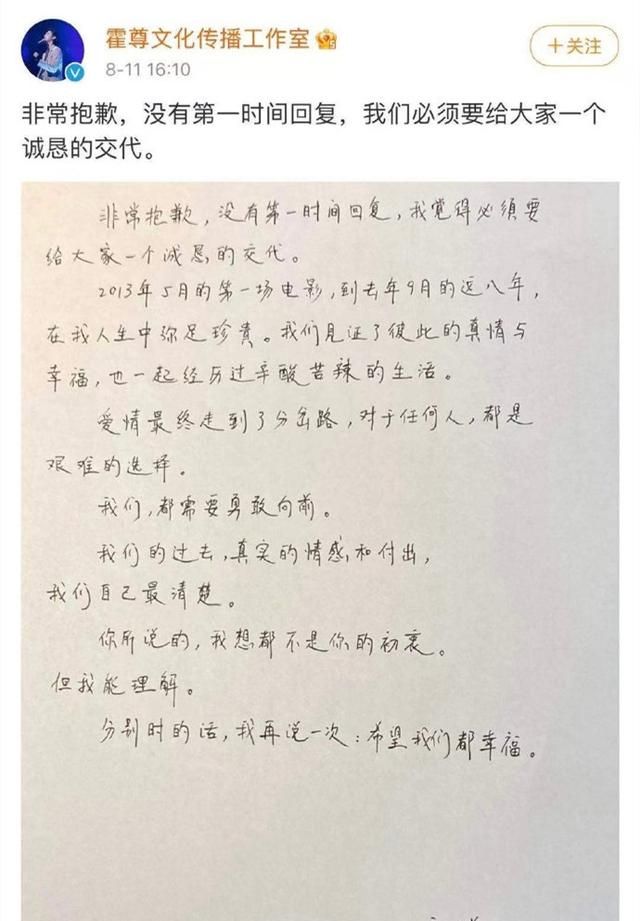 霍尊文化传播工作室
8-11 16:10
+关注
非常抱歉，没有第一时间回复，我们必须要给大家一个
诚恳的交代。
非常抱歉，没有第一时间回复，我觉得必须要
给大家一个诚恳的交代。
2013年5月的第一场电影，到去年9月的这八年，
在我人生中弥足珍贵。我们见证了彼此的真情与
幸福，也一起经历过辛酸苦辣的生活。
爱情最终走到了分岔路，对于任何人，都是
艰难的选择。
我们，都需要勇敢向前。
我们的过去，真实的情感和付出，
我们自己最清楚。
你所说的，我想都不是你的初衷。
但我能理解。
分别时的话，我再说一次：希望我们都幸福。